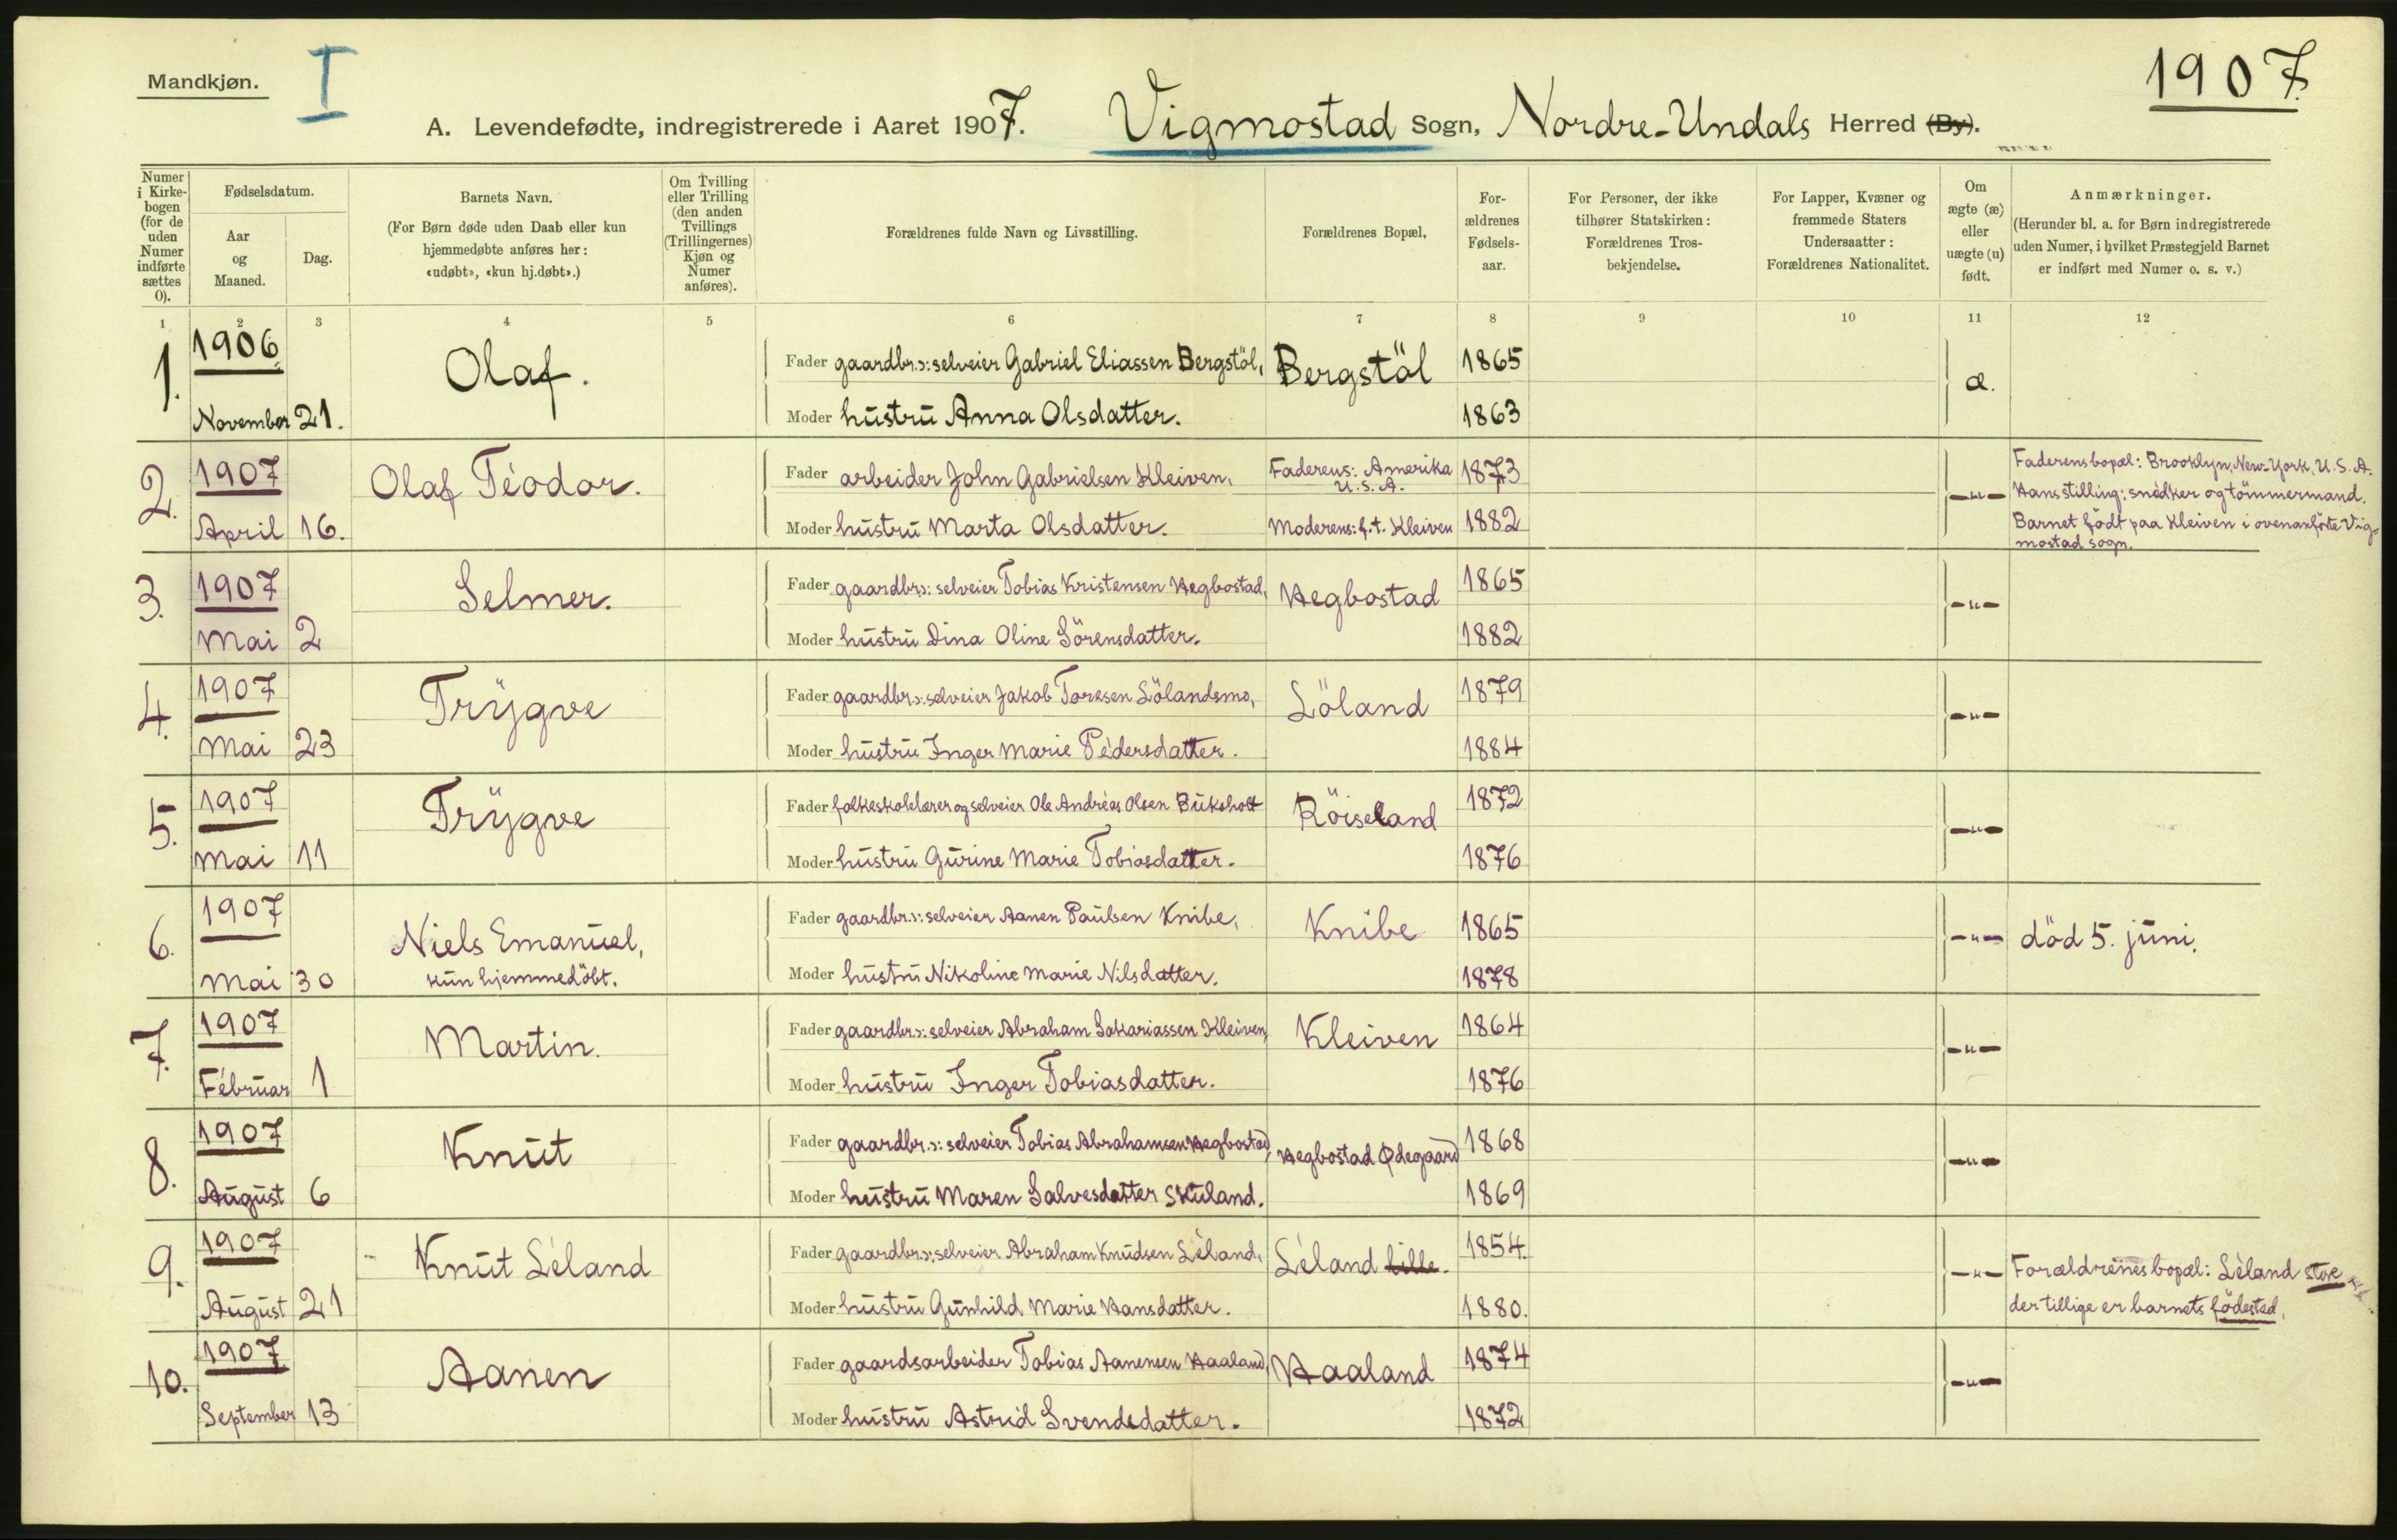 Mandkjøn.
I
1907.
A. Levendefødte, indregistrerede i Aaret 1907. Vigmostad Sogn, Nordre-Undals Herred (By).
Numer i Kirkebogen (for de uden Numer indførte sættes 0).
Fødselsdatum.
Aar og Maaned.
Dag.
Barnets Navn.
(For Børn døde uden Daab eller kun hjemmedøbte anføres her: «udøbt», «kun hj.døbt».)
Om Tvilling eller Trilling (den anden Tvillings (Trillingernes) Kjøn og Numer anføres).
Forældrenes fulde Navn og Livsstilling.
Forældrenes Bopæl,
Forældrenes Fødselsaar.
For Personer, der ikke tilhører Statskirken: Forældrenes Trosbekjendelse.
For Lapper, Kvæner og fremmede Staters Undersaatter: Forældrenes Nationalitet.
Om ægte (æ) eller uægte (u) født.
Anmærkninger.
(Herunder bl. a. for Børn indregistrerede uden Numer, i hvilket Præstegjeld Barnet er indført med Numer o. s. v.)
1 2 3 4 5 6 7 8 9 10 11 12
1. 1906 Olaf. Fader gaardbr.ɔ: selveier Gabriel Eliassen Bergstöl, Bergstöl 1865 æ.
November 21. Moder hustru Anna Olsdatter. 1863
2. 1907 Olaf Teodor. Fader arbeider John Gabrielsen Kleiven. Faderens: Amerika U.S.A. 1873 -"- Faderens bopæl: Brooklyn, New-York, U.S.A.
Hans stilling: snedker og tömmermand.
April 16. Moder hustru Marta Olsdatter. Moderens: f.t. Kleiven 1882 Barnet födt paa Kleiven i ovenanförte Vigmostad sogn.
3. 1907 Selmer. Fader gaardbr.ɔ: selveier Tobias Kristensen Hegbostad, Hegbostad 1865 -"-
Mai 2 Moder hustru Dina Oline Sörensdatter. 1882
4. 1907 Trygve Fader gaardbr.ɔ: selveier Jakob Toresen Lölandsmo, Löland 1879 -"-
Mai 23 Moder hustru Inger Marie Pedersdatter. 1884
5. 1907 Trygve Fader folkeskolelærer og selveier Ole Andreas Olsen Buksholt Röiseland 1872 -"-
Mai 11 Moder hustru Gurine Marie Tobiasdatter. 1876
6. 1907 Niels Emanuel, Fader gaardbr.ɔ: selveier Aanen Paulsen Knibe, Knibe 1865 -"- död 5. juni.
Mai 30 kun hjemmedöbt. Moder hustru Nikoline Marie Nilsdatter. 1878
7. 1907 Martin. Fader gaardbr.ɔ: selveier Abraham Sakariassen Kleiven, Kleiven 1864 -"-
Februar 1 Moder hustru Inger Tobiasdatter. 1876
8. 1907 Knut Fader gaardbr.ɔ: selveier Tobias Abrahamsen Hegbostad, Hegbostad Ødegaard 1868 -"-
August 6 Moder hustru Maren Salvesdatter Skuland. 1869
9. 1907 Knut Leland Fader gaardbr.ɔ: selveier Abraham Knudsen Leland, Leland lille. 1854. -"- Forældrenes bopæl: Leland store
August 21 Moder hustru Gunhild Marie Hansdatter. 1880. der tillige er barnets födested.
10. 1907 Aanen Fader gaardsarbeider Tobias Aanensen Haaland, Haaland 1874 -"-
September 13 Moder hustru Astrid Svendsdatter. 1872